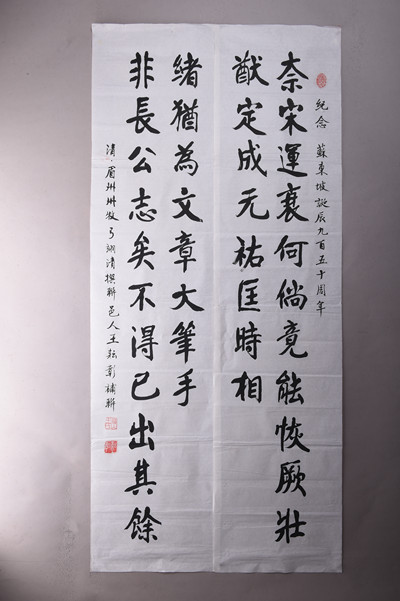 紀念 蘇東坡誕辰九百五十周年
奈宋運衰何倘竟能恢厥壯
猷定成元祐匡時相
非長公志矣不得已出其餘
緒猶為文章大筆手
清·眉州州牧弓翊清撰聯 邑人王彰補聯